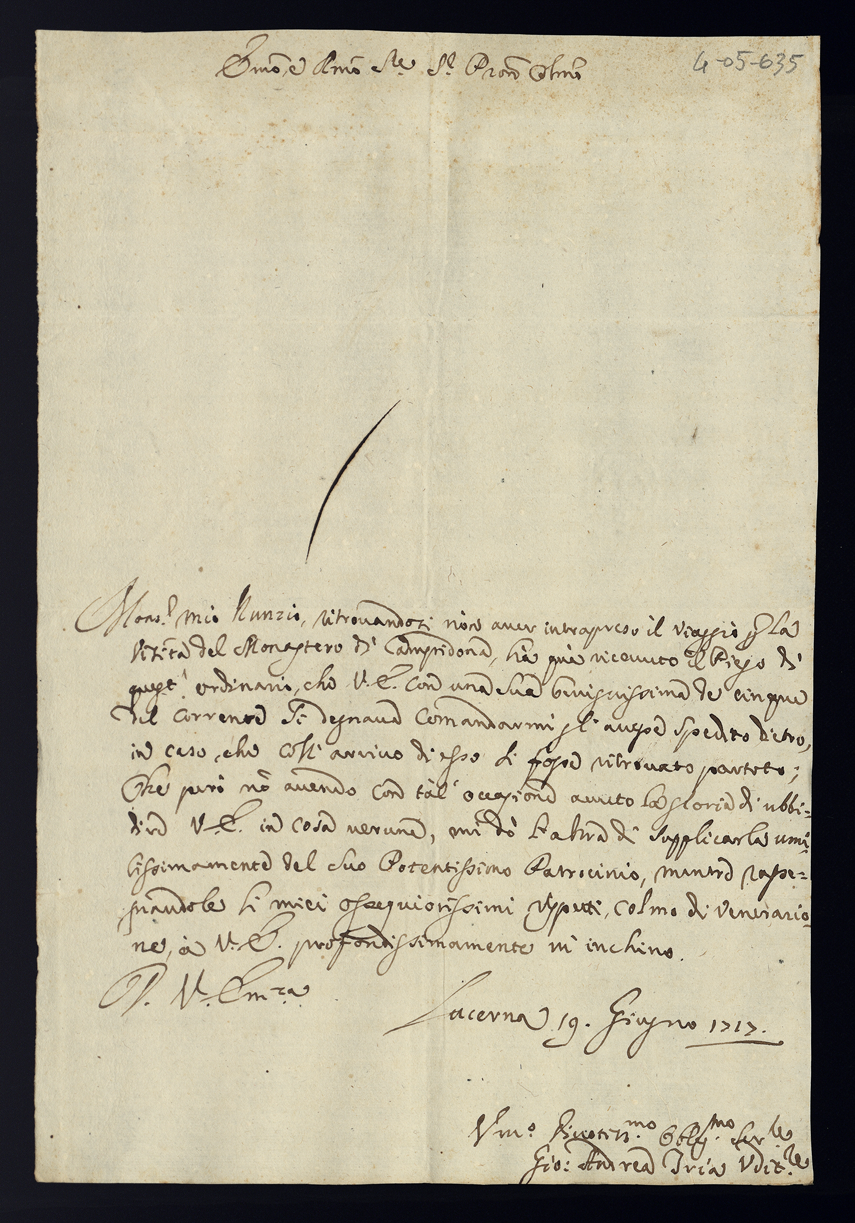 Emo, e Rmo Sre Sr Pron Colmo
4-05-635
Monsr mio Nunzio, ritrovandosi non aver intrapreso il viaggio p la
Visita del Monastero di Campidona, hà quà ricevuto il Piego di
quest' ordinario, che V. E. con una sua benignissima de cinque
del corrente si degnava comandarmi gli avesse spedito dietro,
in caso, che costì arrivo di esso si fosse ritrovato partito;
Che però nõ avendo con tal' occasione avuto la gloria di ubbi=
dire V. E. in cosa veruna, mi dò l'altra di supplicarla umi=
lissimamente del suo Potentissimo Patrocinio, mentre rasse=
gnandole li miei ossequiosissimi rispetti, colmo di venerazio=
ne, à V. E. profondissimamente m'inchino.
D. V. Emza
Lucerna 19. Giugno 1717.
Vmo Divotissmo Obligmo Serre
Gio: Andrea Tria Vditre